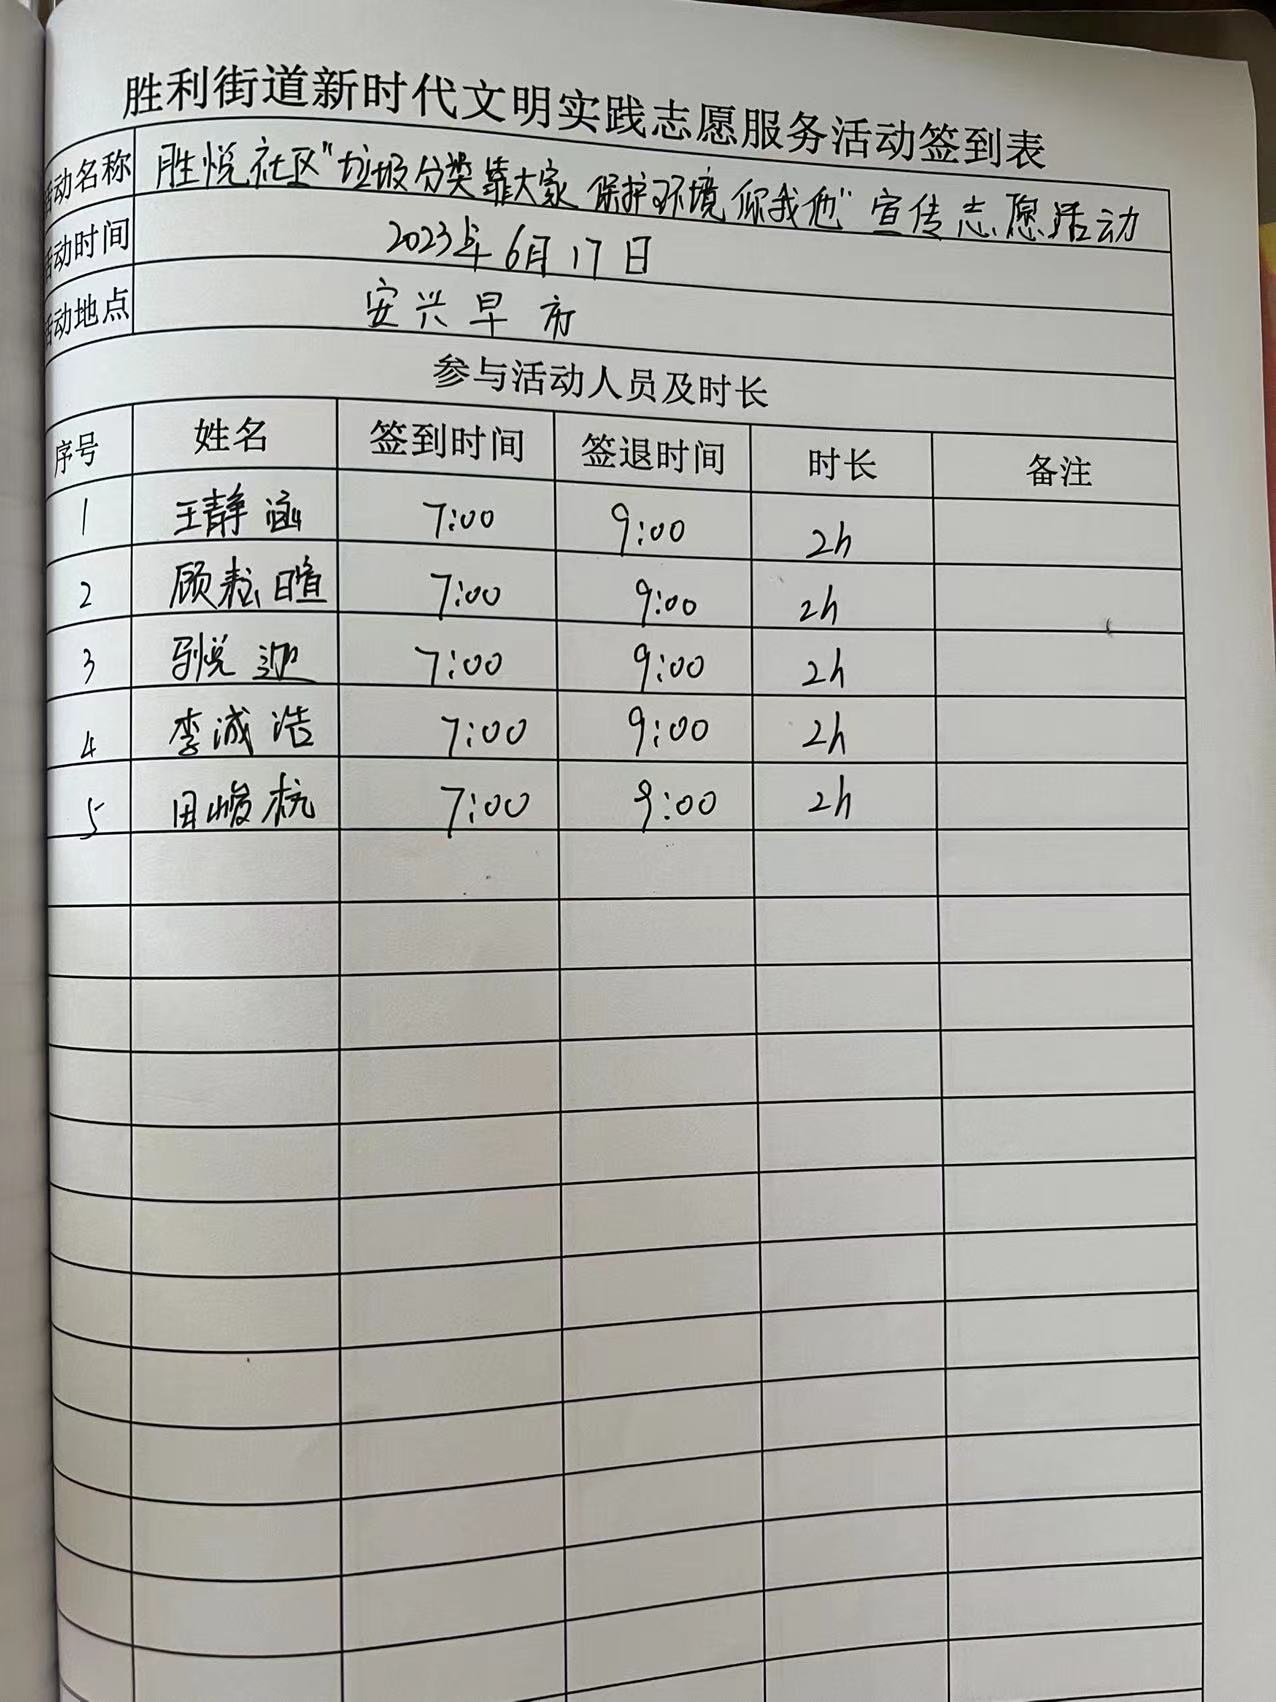 胜利街道新时代文明实践志愿服务活动签到表
活动名称 胜悦社区"垃圾分类靠大家 保护环境你我他"宣传志愿活动
活动时间 2023年6月17日
活动地点 安兴早市
参与活动人员及时长
序号 姓名 签到时间 签退时间 时长 备注
1 王静涵 7:00 9:00 2h
2 顾 暄 7:00 9:00 2h
3 悦 7:00 9:00 2h
4 李诚浩 7:00 9:00 2h
5 田峻杭 7:00 9:00 2h